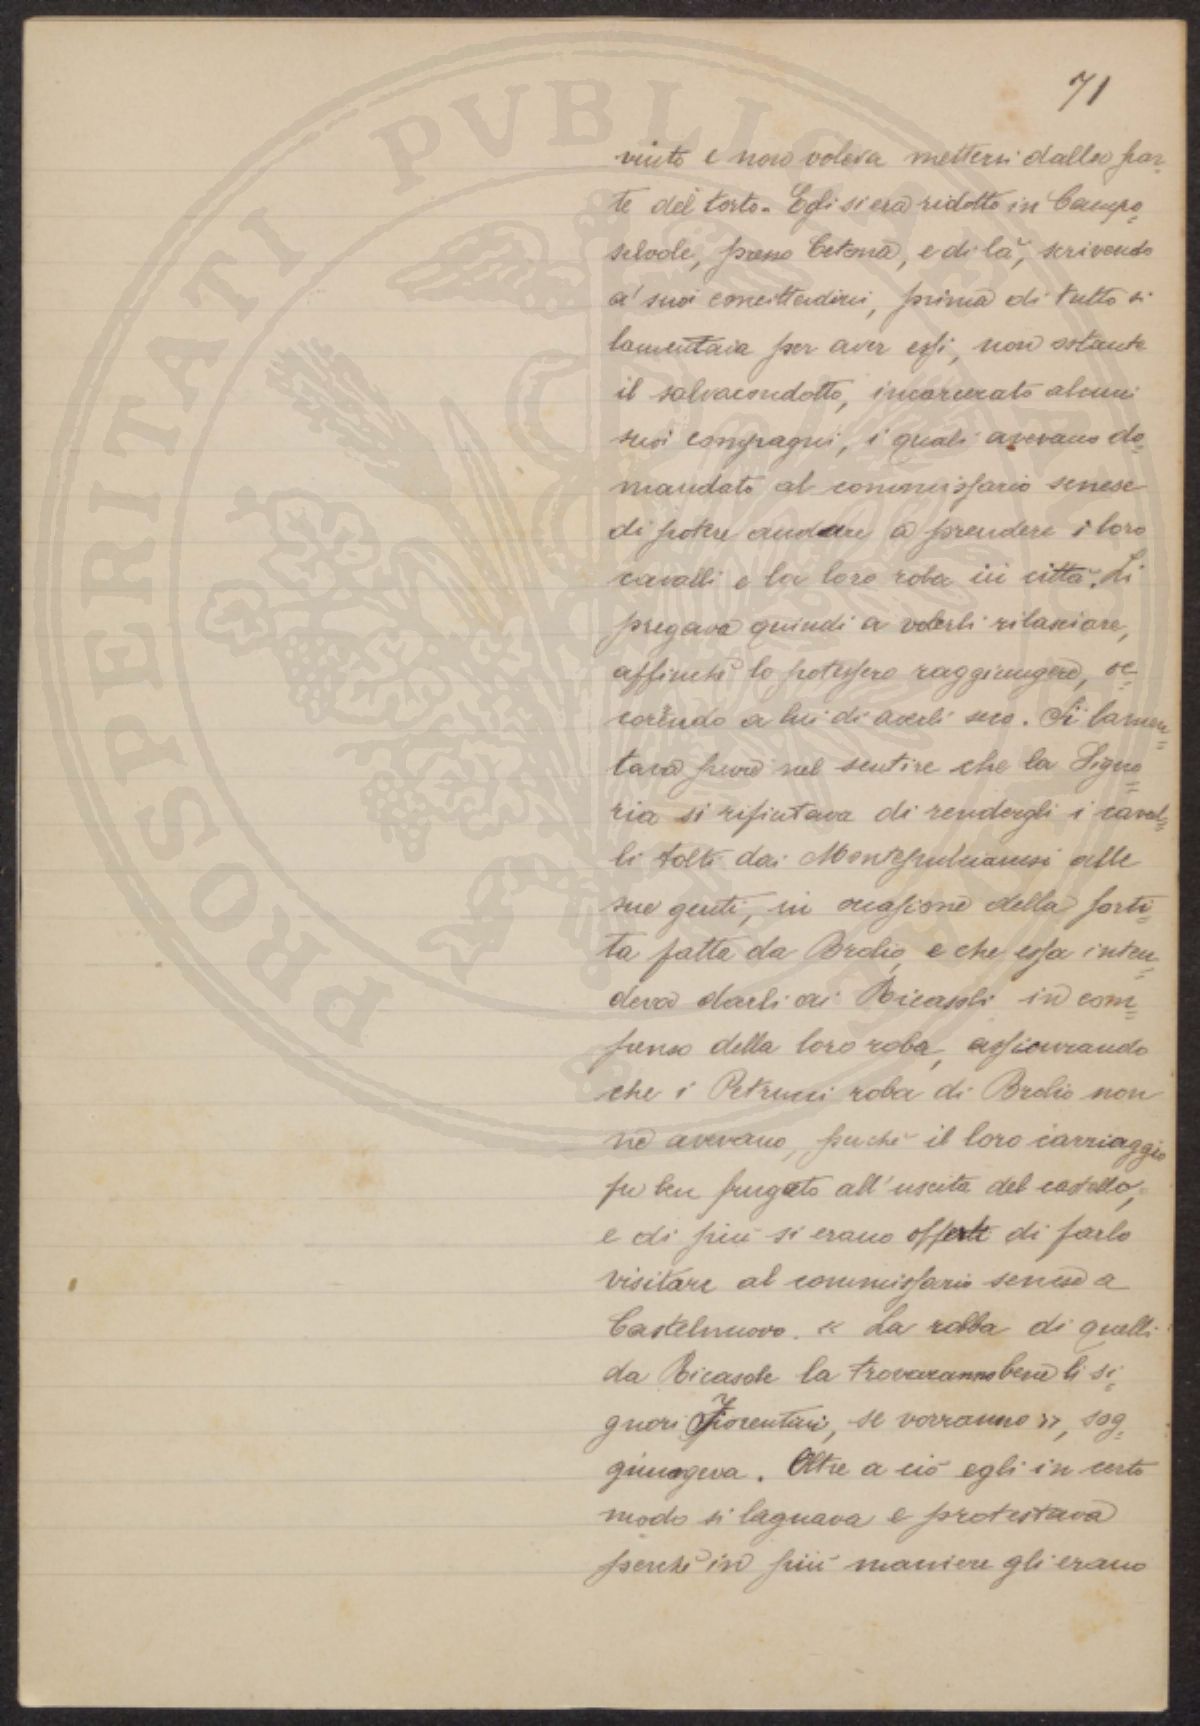 71
vinto e non voleva mettersi dalla par=
te del torto. Egli si era ridotto in Campo=
selvole, presso Cetona, e di là, scrivendo
a' suoi concittadini, prima di tutto si
lamentava per aver essi, non ostante
il salvacondotto, incarcerato alcuni
suoi compagni, i quali avevano do=
mandato al commissario senese
di potere andare a prendere i loro
cavalli e la loro roba in città. Li
pregava quindi a volerli rilasciare,
affinchè lo potessero raggiungere, oc=
correndo a lui di averli seco. Si lamen=
tava pure nel sentire che la Signo=
ria si rifiutava di rendergli i caval=
li tolti dai Montepulcianesi alle
sue genti, in occasione della sorti=
ta fatta da Brolio, e che essa inten=
deva darli ai Ricasoli in com=
penso della loro roba, assicurando
che i Petrucci roba di Brolio non
ne avevano, perchè il loro carriaggio
fu ben frugato all'uscita del castello,
e di più si erano offerti di farlo
visitare al commissario senese a
Castelnuovo. « La robba di quelli
da Ricasole la trovaranno bene li si=
gnori Fiorentini, se vorranno », sog=
giungeva. Oltre a ciò egli in certo
modo si lagnava e protestava
perchè in più maniere gli erano
PROSPERITATI PVBLICAE